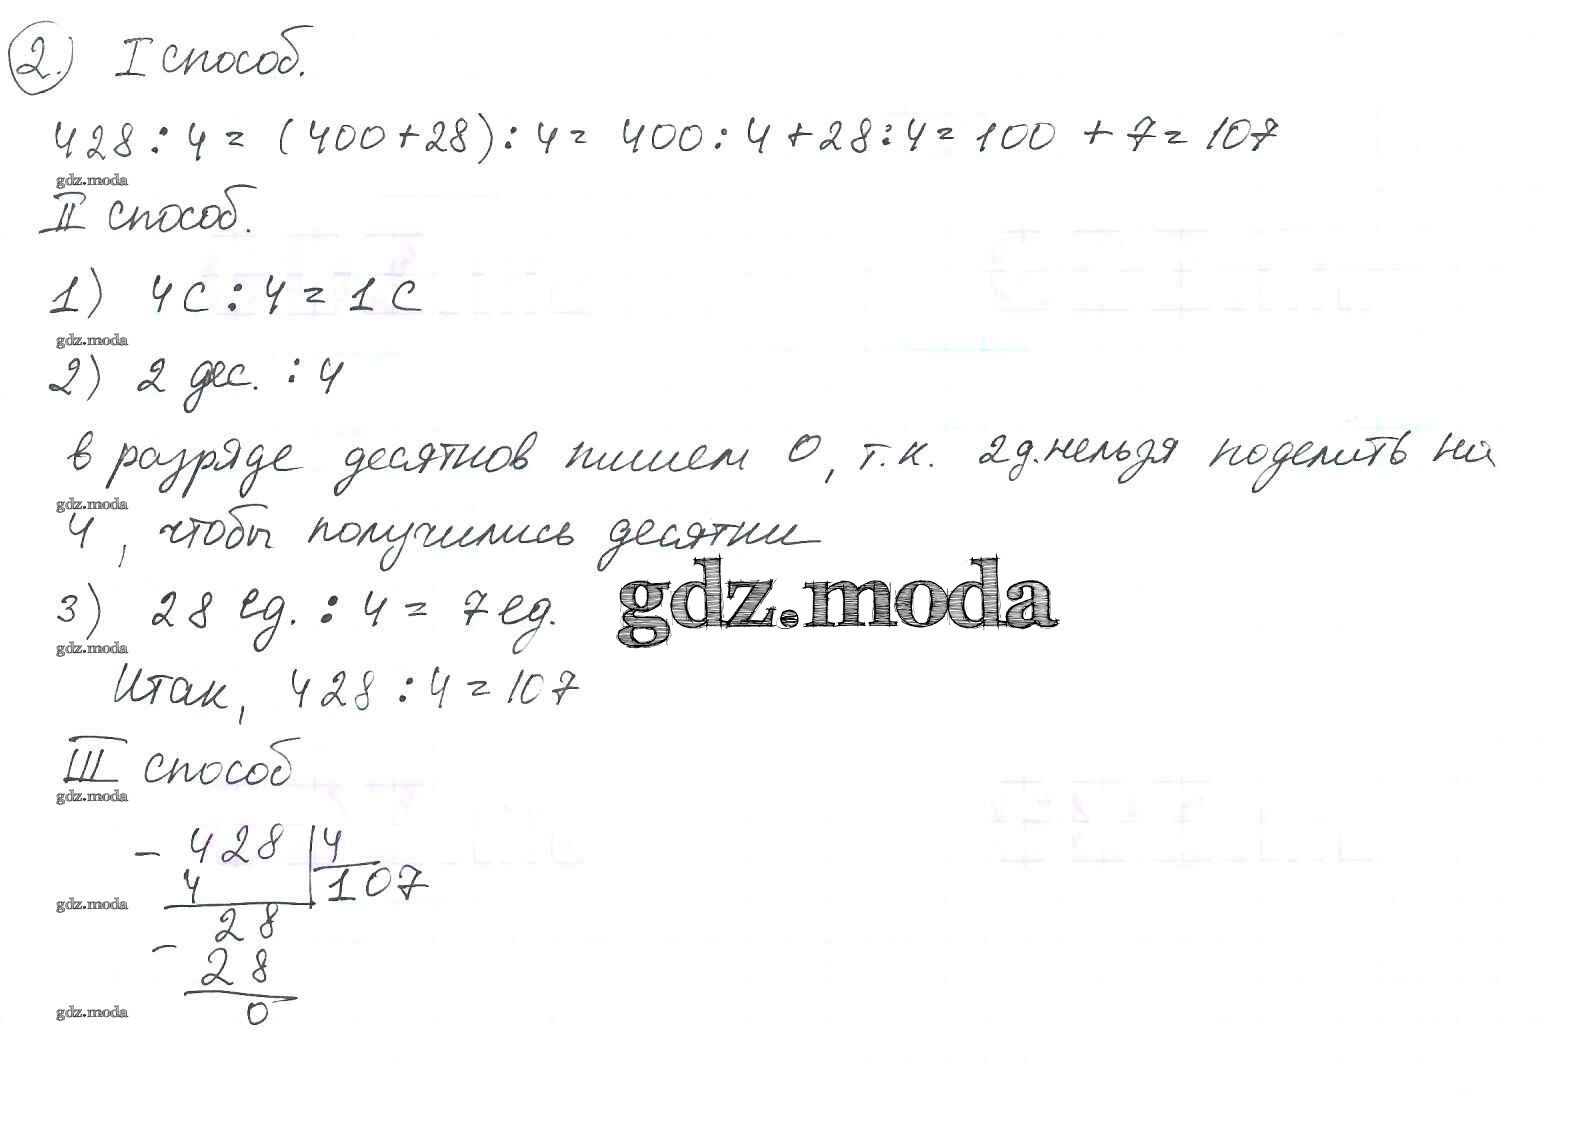 2. I способ.
428 : 4 = (400 + 28) : 4 = 400 : 4 + 28 : 4 = 100 + 7 = 107
gdz.moda
II способ.
1) 4 с : 4 = 1 с
gdz.moda
2) 2 дес. : 4
в разряде десятков пишем 0, т.к. 2 д. нельзя поделить на
gdz.moda
4, чтобы получились десятки
gdz.moda
3) 28 ед. : 4 = 7 ед.
gdz.moda
Итак, 428 : 4 = 107
III способ
gdz.moda
- 428 | 4
4 107
gdz.moda
- 28
28
0
gdz.moda